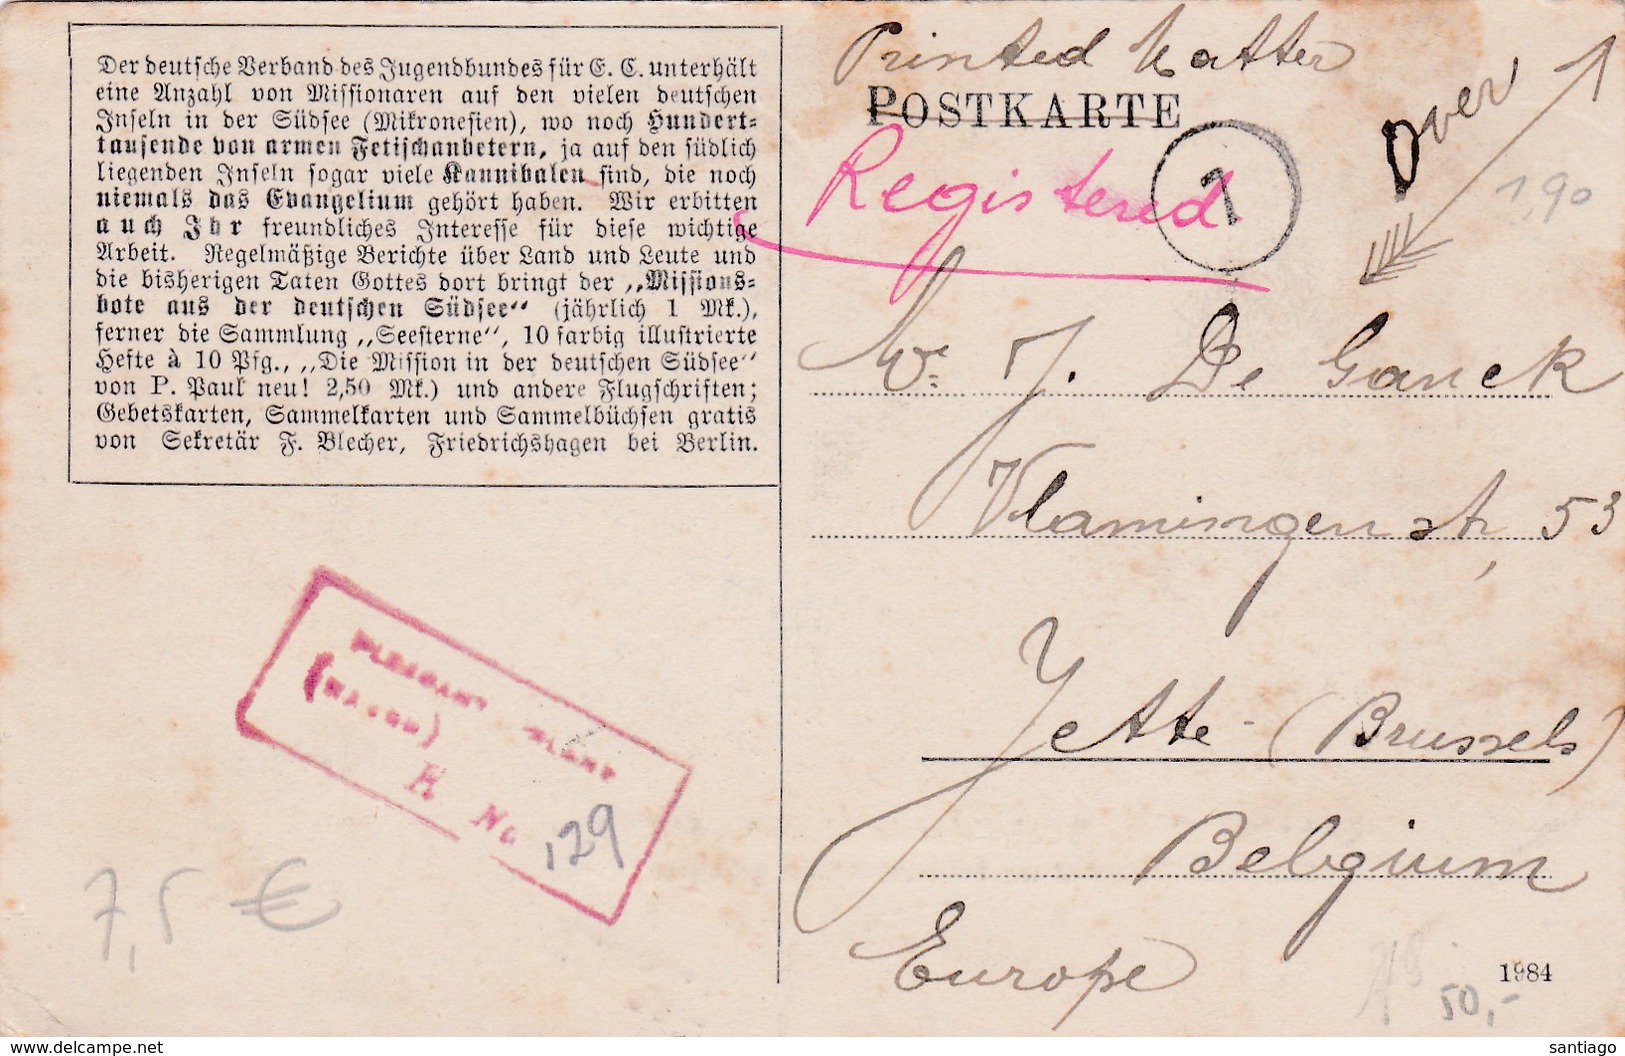 Der deutsche Verband des Jugendbundes für E. C. unterhält
eine Anzahl von Missionaren auf den vielen deutschen
Inseln in der Südsee (Mikronesien), wo noch Hundert-
tausende von armen Fetischanbetern, ja auf den südlich
liegenden Inseln sogar viele Kannibalen sind, die noch
niemals das Evangelium gehört haben. Wir erbitten
auch Ihr freundliches Interesse für diese wichtige
Arbeit. Regelmäßige Berichte über Land und Leute und
die bisherigen Taten Gottes dort bringt der „Missions-
bote aus der deutschen Südsee“ (jährlich 1 Mk.),
ferner die Sammlung „Seesterne“, 10 farbig illustrierte
Hefte à 10 Pfg., „Die Mission in der deutschen Südsee“
von P. Paul neu! 2,50 Mk.) und andere Flugschriften;
Gebetskarten, Sammelkarten und Sammelbüchsen gratis
von Sekretär F. Blecher, Friedrichshagen bei Berlin.
Printed Matter
POSTKARTE
Registered
7
Over
1,90
J. De Ganck
Vlamingenstr, 53
Jette (Brussels)
Belgium
Europe
PLEASANT ISLAND
(NAURU)
R No 129
7,5 €
1984
50,-
delcampe.net
santiago